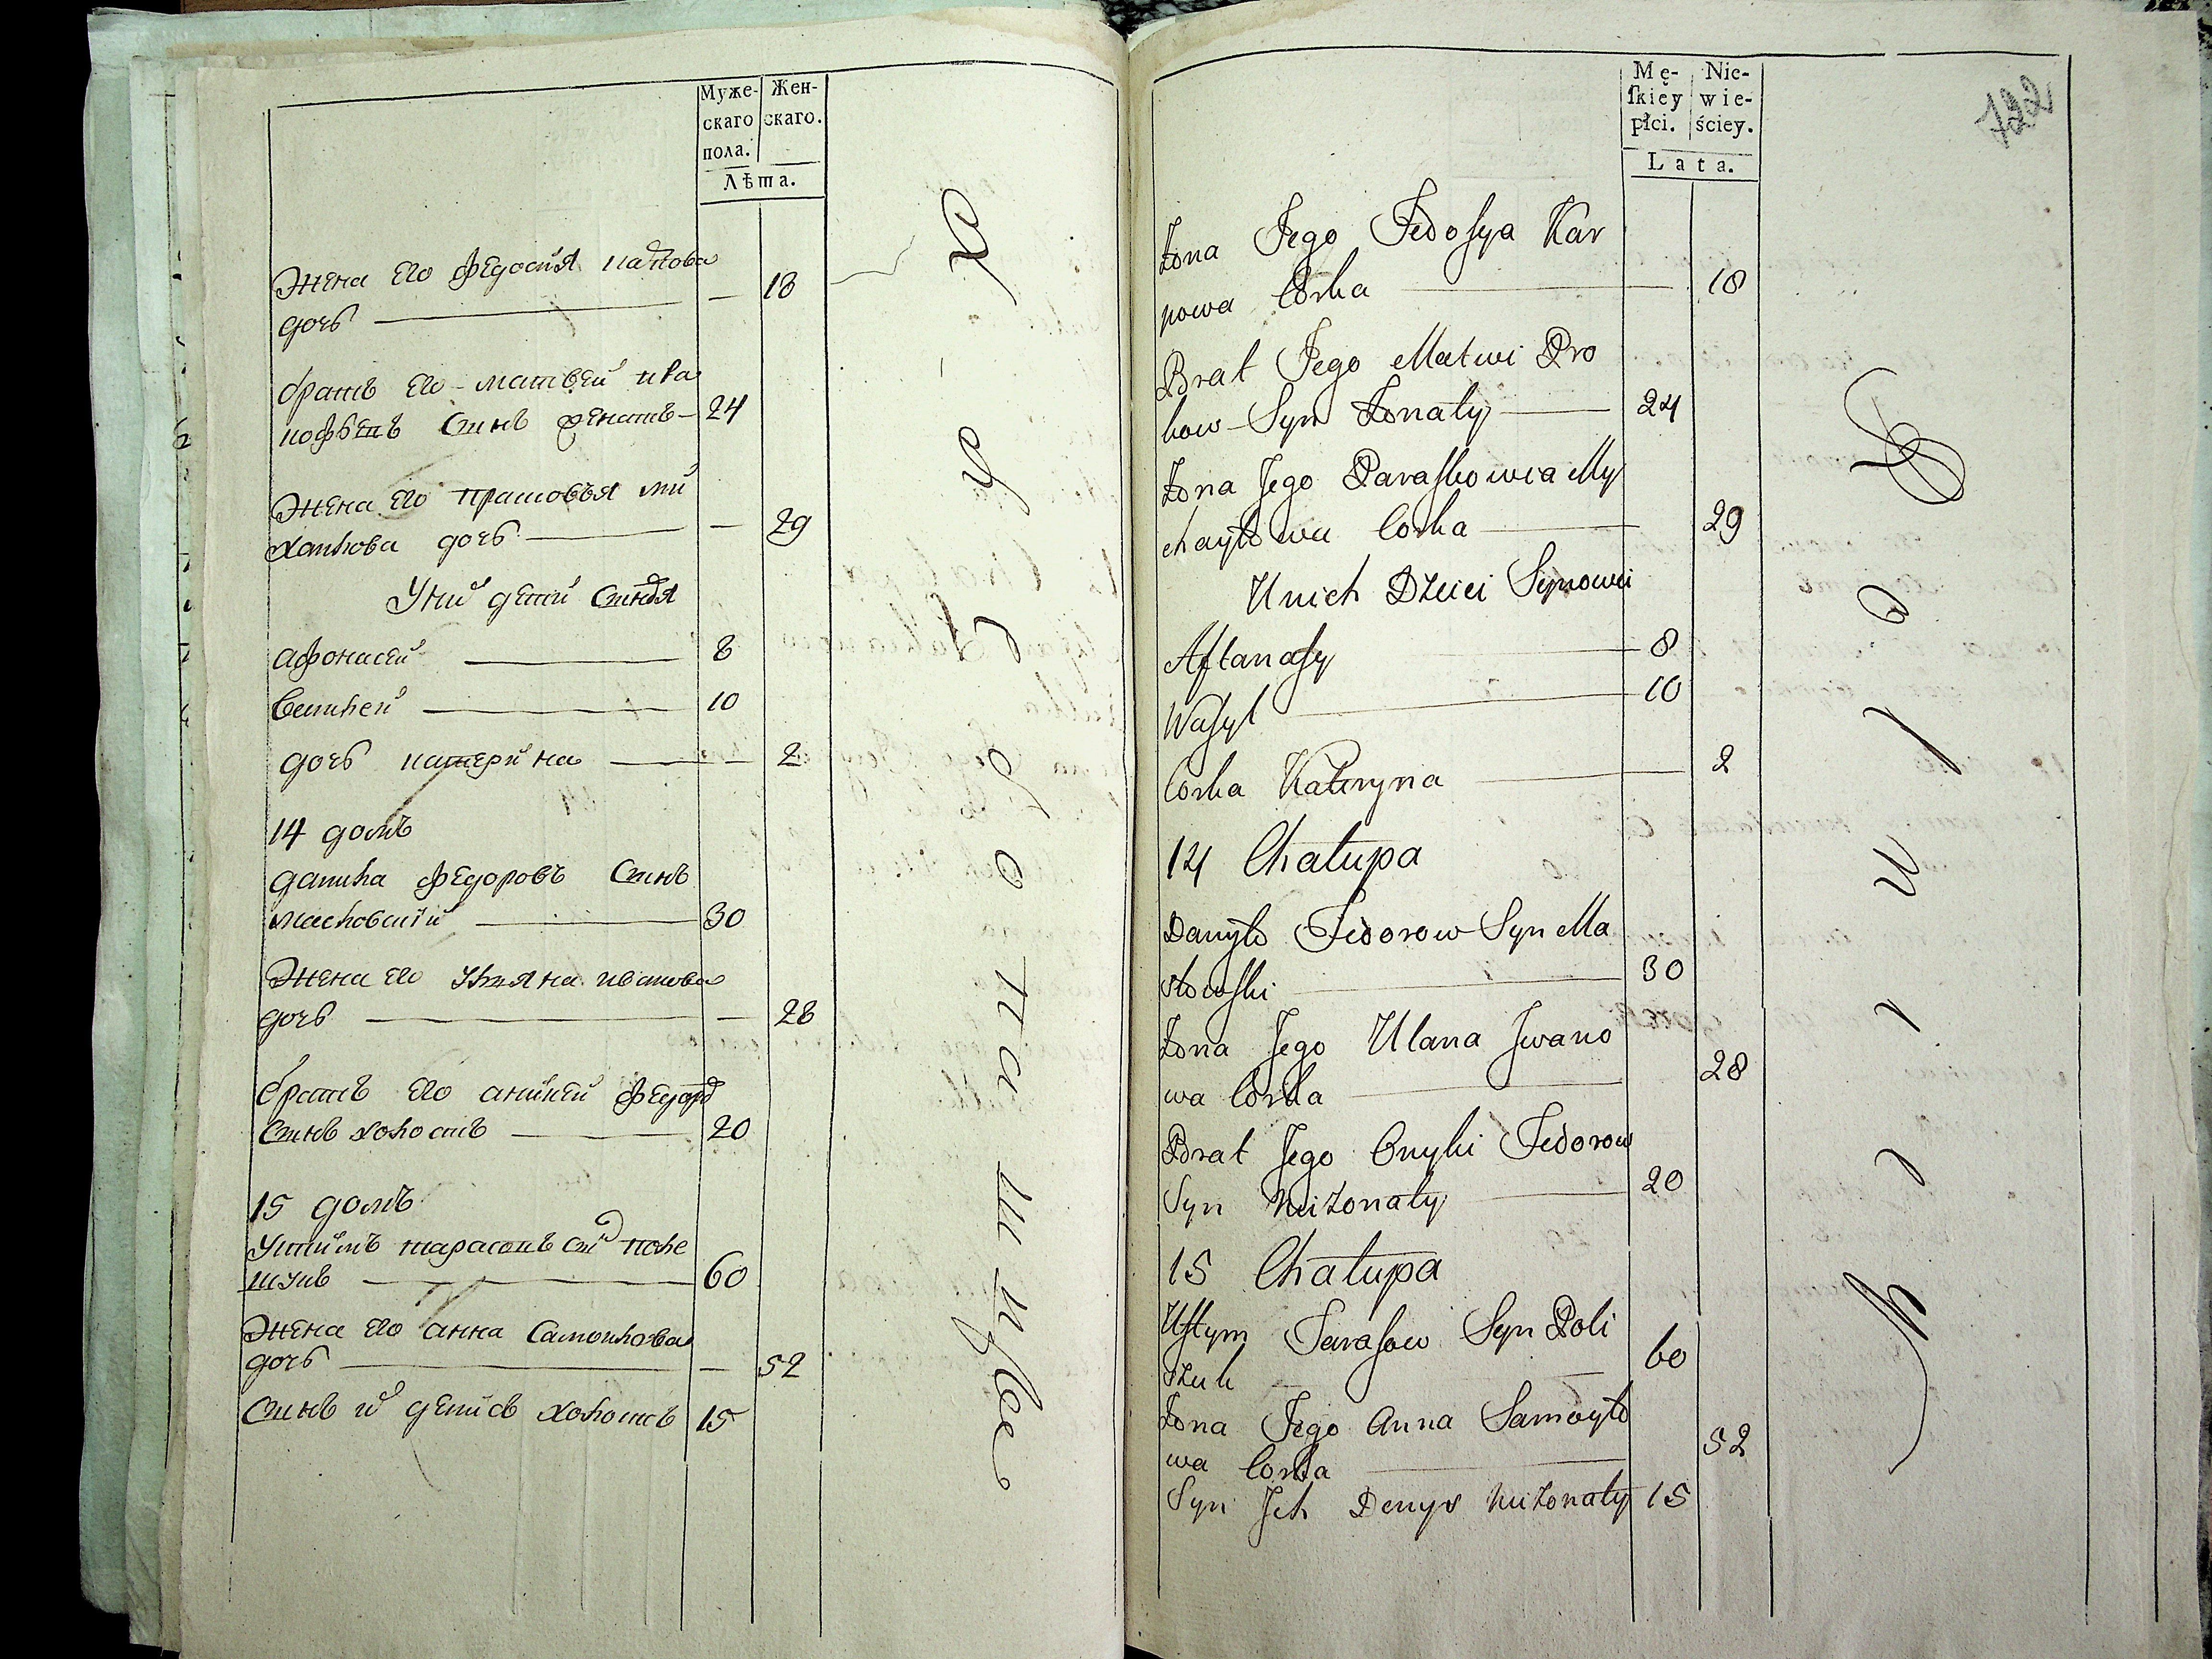 Муже- Жен-
скаго скаго.
пола.
Лѣта.
Жена его Федосия Карпова
дочь — 18
братъ его матвей пра
кофьевъ Синъ женатъ — 24
Жена его прасковья ми
хайлова дочь — 29
У них дети Синовя
афонасей 8
Василей 10
дочь катерина 2
14 домъ
данила Федоровъ Синъ
масловский 30
Жена его Уляна иванова
дочь — 28
братъ его аникей Федоров
Синъ холостъ 20
15 домъ
Устимъ тарасовъ си поле
щукъ 60
Жена его анна Самойлова
дочь — 52
Синъ их денисъ холостъ 15
Mę- Nie-
ſkiey wie-
płci. ściey.
Lata.
Żona Jego Fedoſya Kar
powa Corka 18
Brat Jego Matwi Pro
kow Syn Żonaty 24
Żona Jego Paraſkowia My
chayłowa Corka 29
U nich Dzieci Synowie
Aftanaſy 8
Waſyl 10
Corka Kateryna 2
14 Chałupa
Danyło Fedorow Syn Ma
słowſki 30
Żona Jego Ulana Jwano
wa Corka 28
Brat Jego Onyki Fedorow
Syn Nieżonaty 20
15 Chałupa
Uſtym Taraſow Syn Poli
szuk 60
Żona Jego Anna Samoyło
wa Corka 52
Syn Jch Denys Nieżonaty 15